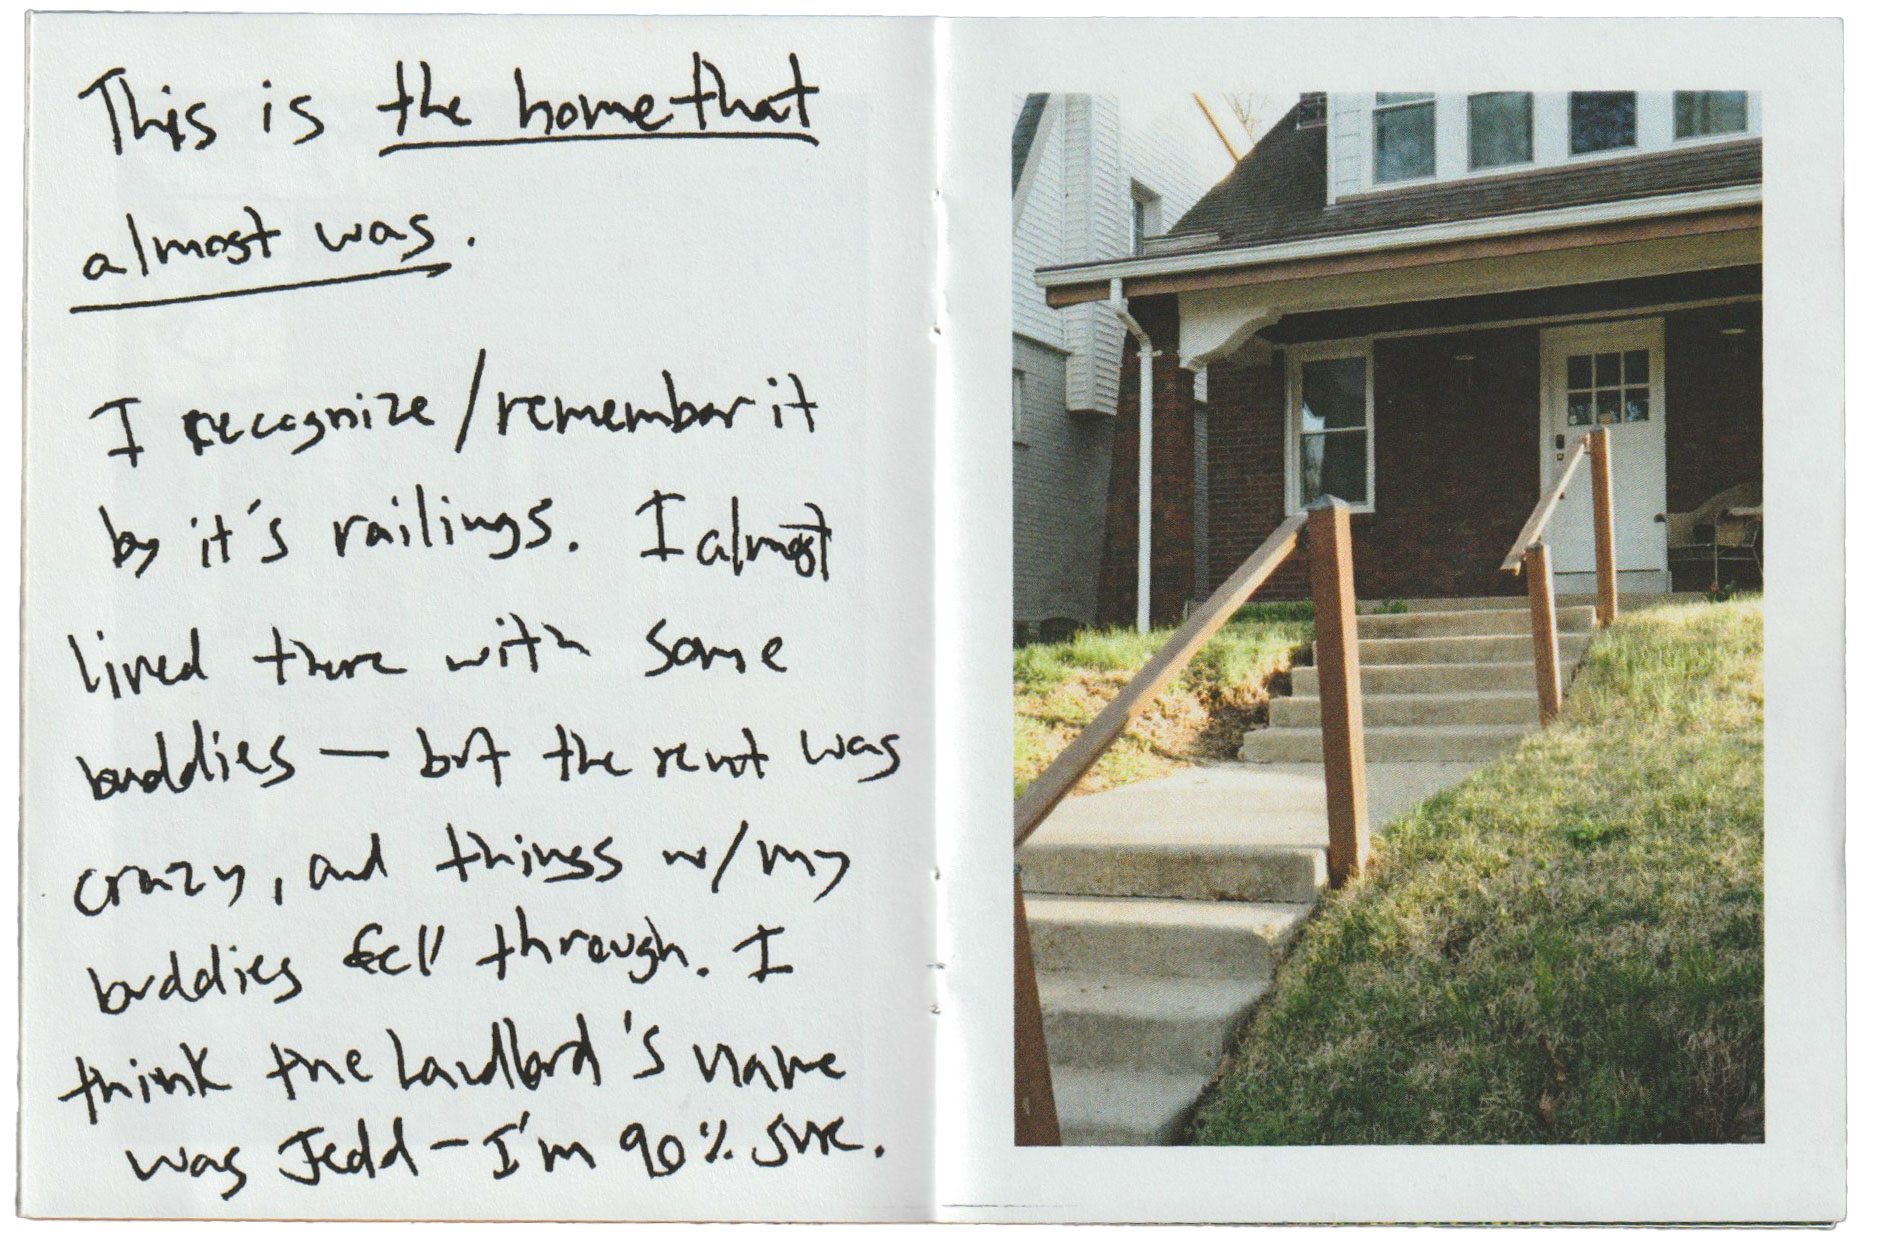 This is the home that
almost was.
I recognize/remember it
by it's railings. I almost
lived there with some
buddies — but the rent was
crazy, and things w/my
buddies fell through. I
think the landlord's name
was Jedd — I'm 90% sure.